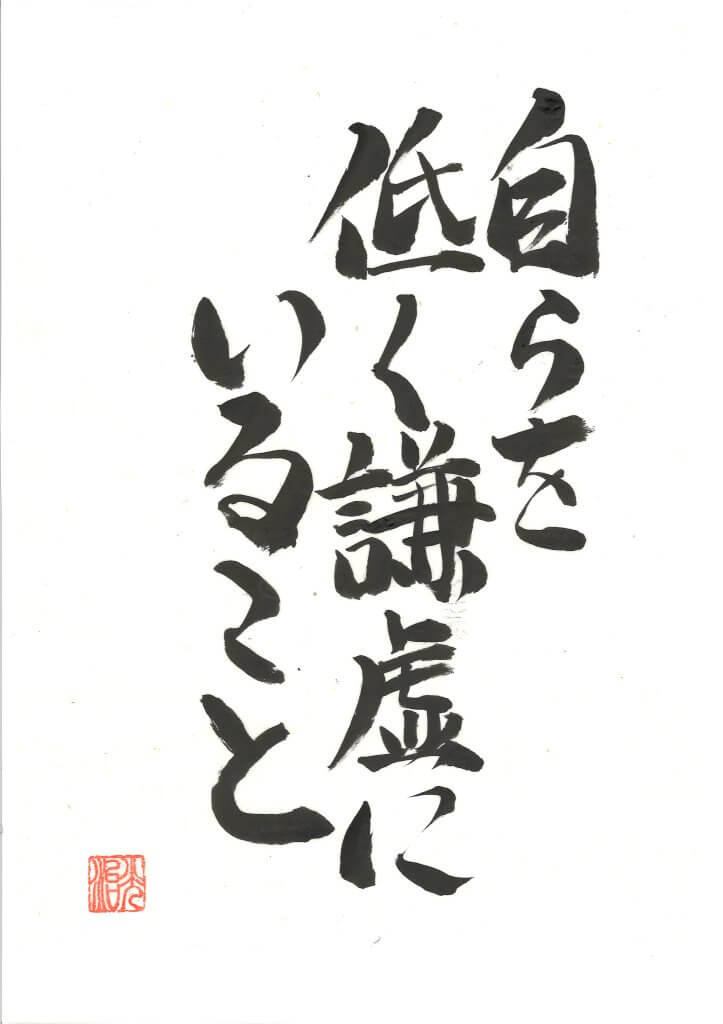 自らを
低く謙虚に
いること